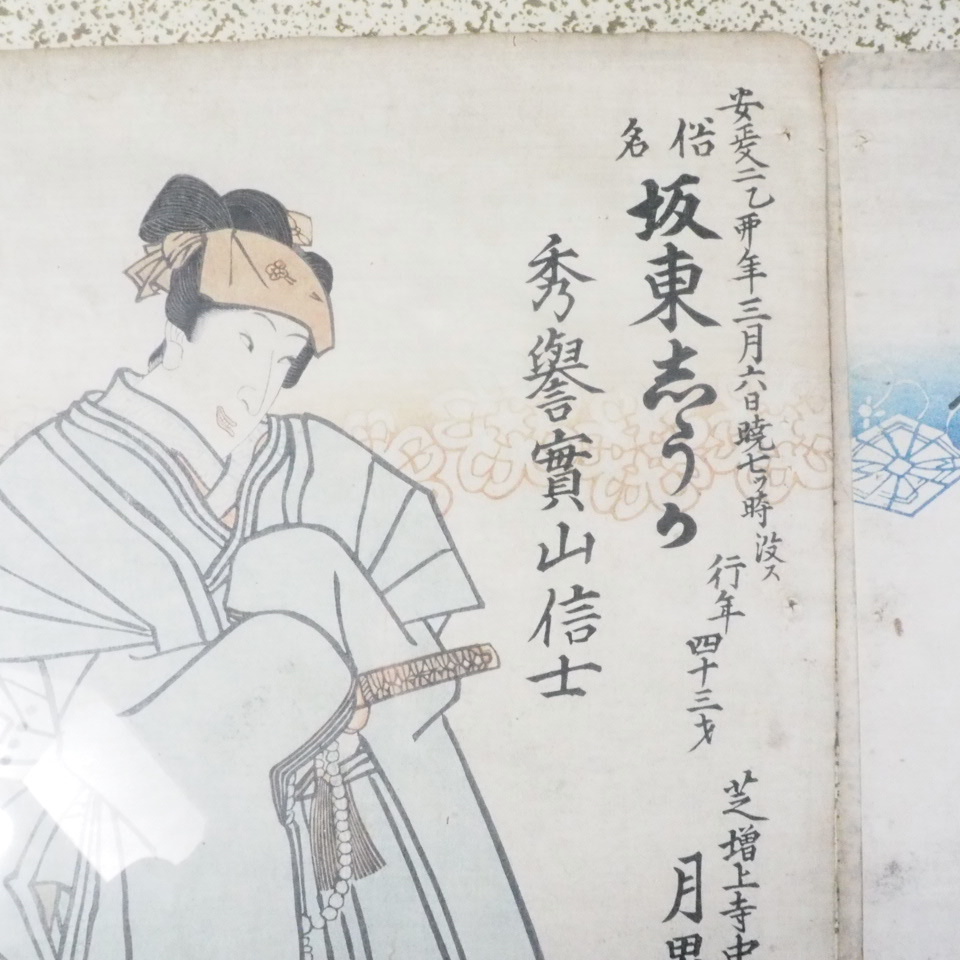 安政二乙卯年三月六日暁七ッ時没ス
行年四十三才
俗名
坂東志うか
秀譽實山信士
芝増上寺中
月界